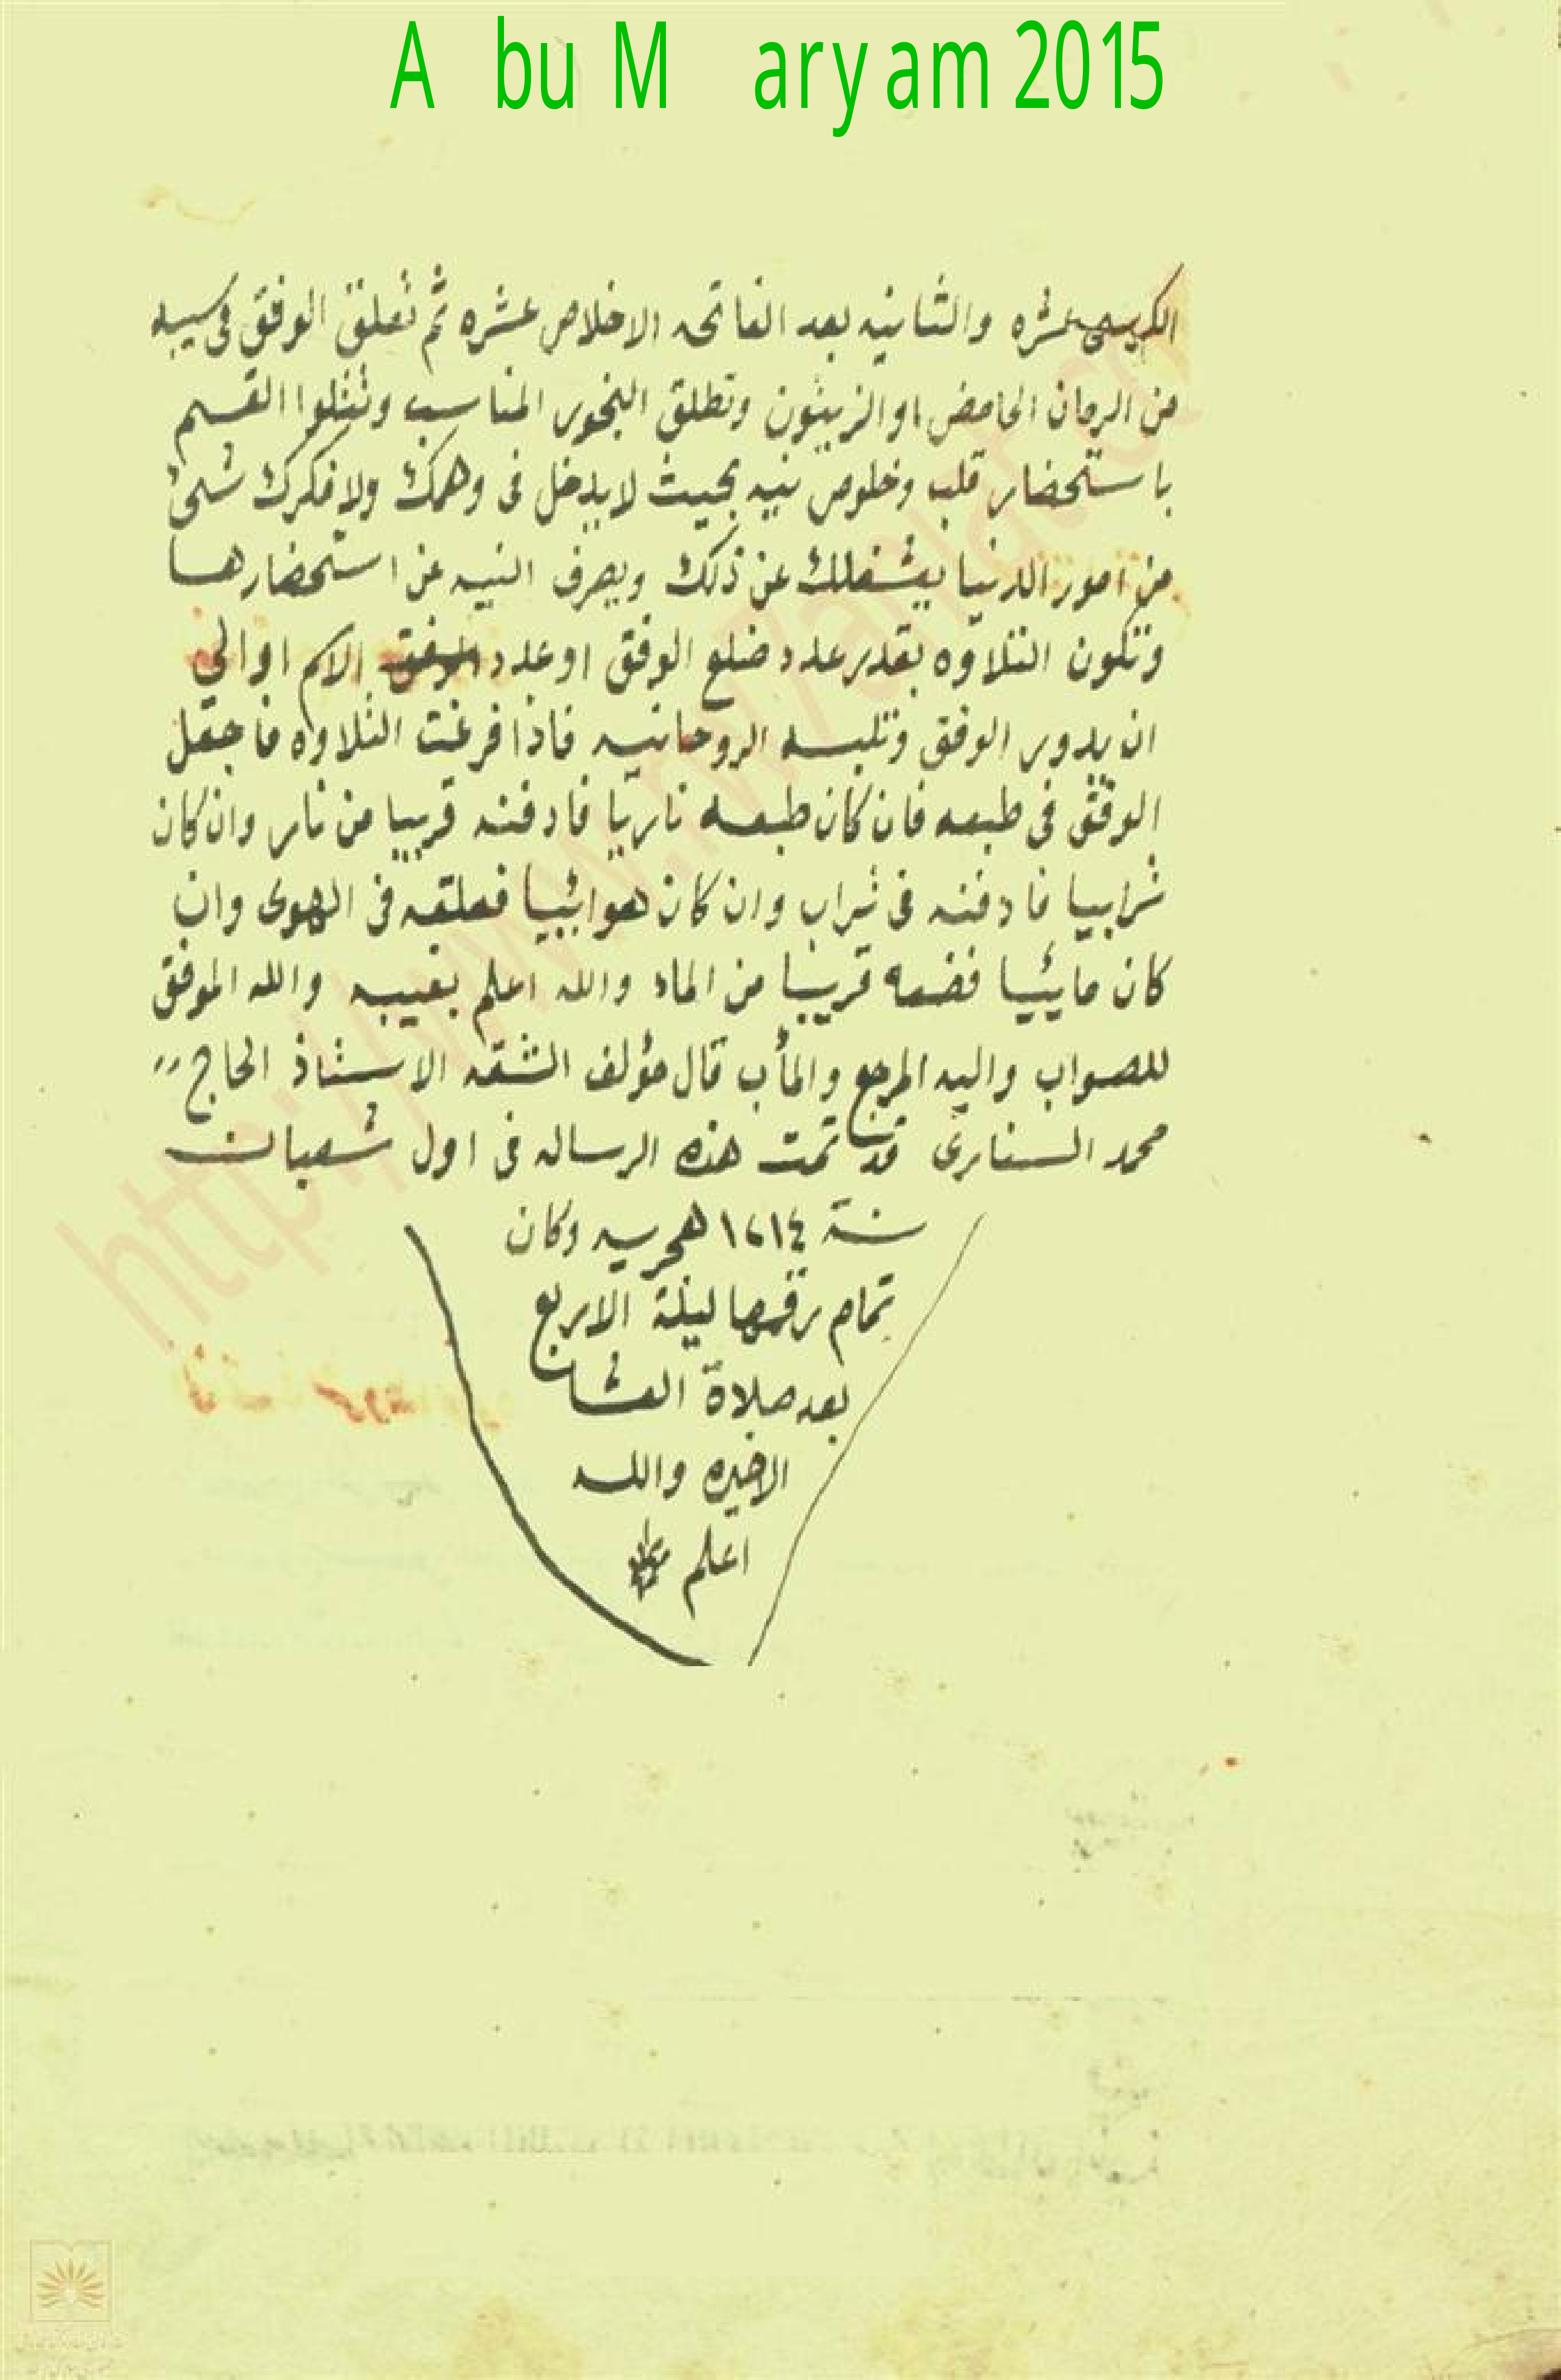 A bu M aryam 2015
الكرسي عشره والثانيه بعد الفاتحه الاخلاص عشره ثم تعلق الوفق في سيبه
من الرمان الحامض او الزيتون وتطلق البخور المناسب وتتلوا القسم
باستحضار قلب وخلوص نيه بحيث لا يدخل في وهمك ولا فكرك شئ
من امور الدنيا يشغلك عن ذلك ويصرف النيه عن استحضارها
وتكون التلاوه بقدر عدد ضلع الوفق او عدد الوفق الاسم او الي
ان يدور الوفق وتلبسه الروحانيه فاذا فرغت التلاوه فاجعل
الوفق في طبعه فان كان طبعه ناريا فادفنه قريبا من نار وان كان
ترابيا فادفنه في تراب وان كان هوائيا فعلقه في الهوى وان
كان مائيا فضعه قريبا من الماء والله اعلم بغيبه والله الموفق
للصواب واليه المرجع والمأب قال مؤلف الشقه الاستاذ الحاج
محمد السناري قد تمت هذه الرساله في اول شعبان
سنة ١٢١٤ هجريه وكان
تمام رقمها ليلة الاربع
بعد صلاة العشا
الاخيره والله
اعلم
http://www.